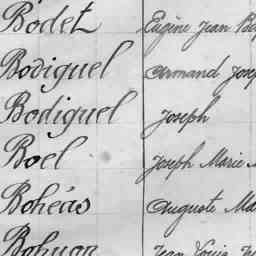 Bodet Eugène Jean
Bodiguel Armand
Bodiguel Joseph
Boel Joseph Marie
Bohéas Auguste
Bohuon Jean Louis